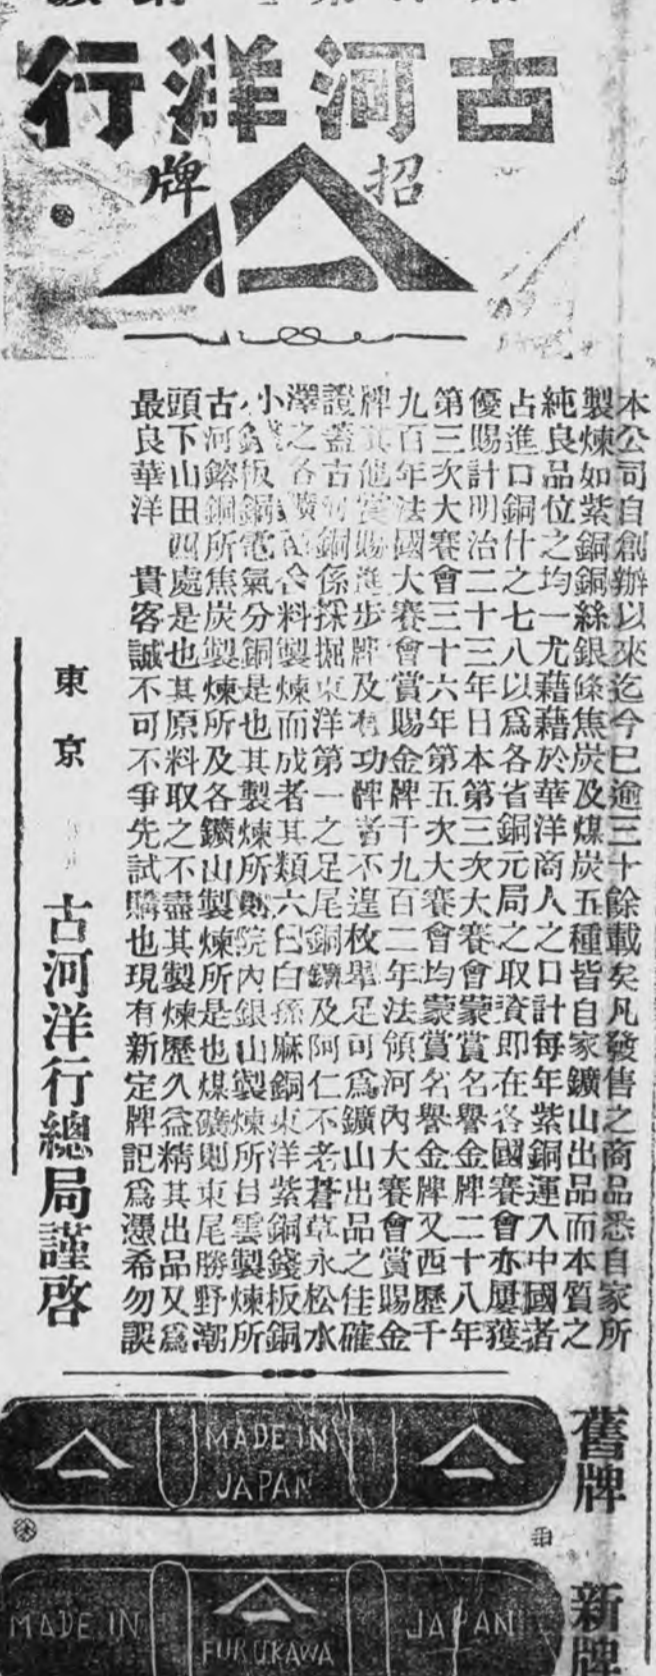 古河洋行
招牌
本公司自創辦以來迄今已逾三十餘載矣凡發售之商品悉自家所
製煉如紫銅銅絲銀條焦炭及煤炭五種皆自家鑛山出品而本質之
純良品位之均一尤藉藉於華洋商人之口計每年紫銅運入中國者
占進口銅什之七八以爲各省銅元局之取資即在各國賽會亦屢獲
優賜計明治二十三年日本第三次大賽會蒙賞名譽金牌二十八年
第三次大賽會三十六年第五次大賽會均蒙賞名譽金牌又西歷千
九百年法國大賽會賞賜金牌千九百二年法領河內大賽會賞賜金
牌其他賞賜進步牌及有功牌者不遑枚舉足可爲鑛山出品之佳確
證蓋古河銅係採掘東洋第一之足尾銅鑛及阿仁不老蒼草永松水
澤之各鑛 合料製煉而成者其類六 白 麻銅東洋紫銅錢板銅
小 板銅電氣分銅是也其製煉所則院內銀山製煉所 雲製煉所
古河鎔銅所焦炭製煉所及各鑛山製煉所是也煤礦則東尾勝野潮
頭下山田四處是也其原料取之不盡其製煉歷久益精其出品又爲
最良華洋 貴客誠不可不爭先試購也現有新定牌記爲憑希勿誤
東京
古河洋行總局謹啓
舊牌
MADE IN
JAPAN
新牌
MADE IN
FURUKAWA
JAPAN